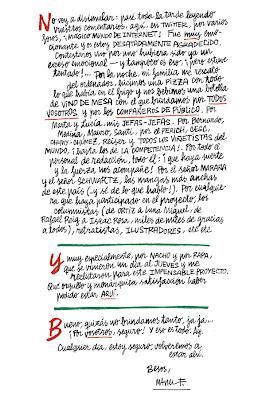 No voy a disimular: pasé toda la tarde leyendo
vuestros comentarios, aquí, en TWITTER, por varios
foros, ¡MÁGICO MUNDO DE INTERNET! Fue muy emo-
cionante y lo estoy DISPARATADAMENTE AGRADECIDO.
Contestaros uno por uno hubiera sido ya un
exceso emocional — y tampoco es eso: ¡pero estuve
tentado!... Por la noche, mi familia me rescató
del ordenador, hicimos una PIZZA CON todo
lo que había en el frigo y nos bebimos una botella
de VINO DE MESA con el que brindamos por TODOS
VOSOTROS y por los COMPAÑEROS DE PÚBLICO. Por
Marta y Lucía, mis JEFAS-JEFAS. Por Bernardo,
Marina, Mauro, Santi, por el PERICH, CESC,
CHUMY-CHÚMEZ, REISER y TODOS LOS VIÑETISTAS DEL
MUNDO, ¡hasta los de LA COMPETENCIA!. Por todo el
personal de redacción, todo él: ¡que haya suerte
y la fuerza nos acompañe! Por el señor MARAÑA
y el señor SCHWARTZ, las mangas más anchas
de este país (¡y sé de lo que hablo!). Por cualquie-
ra que haya participado en el proyecto, los
columnistas (de ORTIZ a Luna Miguel, de
Rafael Reig a Isaac Rosa, miles de miles de gracias
a todos), retratistas, ILUSTRADORES, etc etc
Y muy especialmente, por NACHO y por RAPA,
que se vinieron un día al JUEVES y me
reclutaron para este IMPENSABLE PROYECTO.
Qué orgullo y monárquica satisfacción haber
podido estar AQUÍ.
Bueno, quizás no brindamos tanto, ja ja...
¡Por vosotros, seguro! Y eso es todo.
Cualquier día, estoy seguro, volveremos a
estar ahí.
Besos,